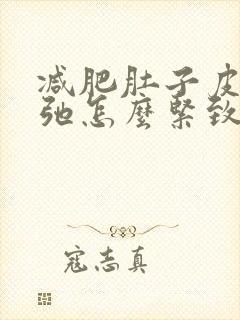 减肥肚子皮
弛怎麼緊致
寇志真